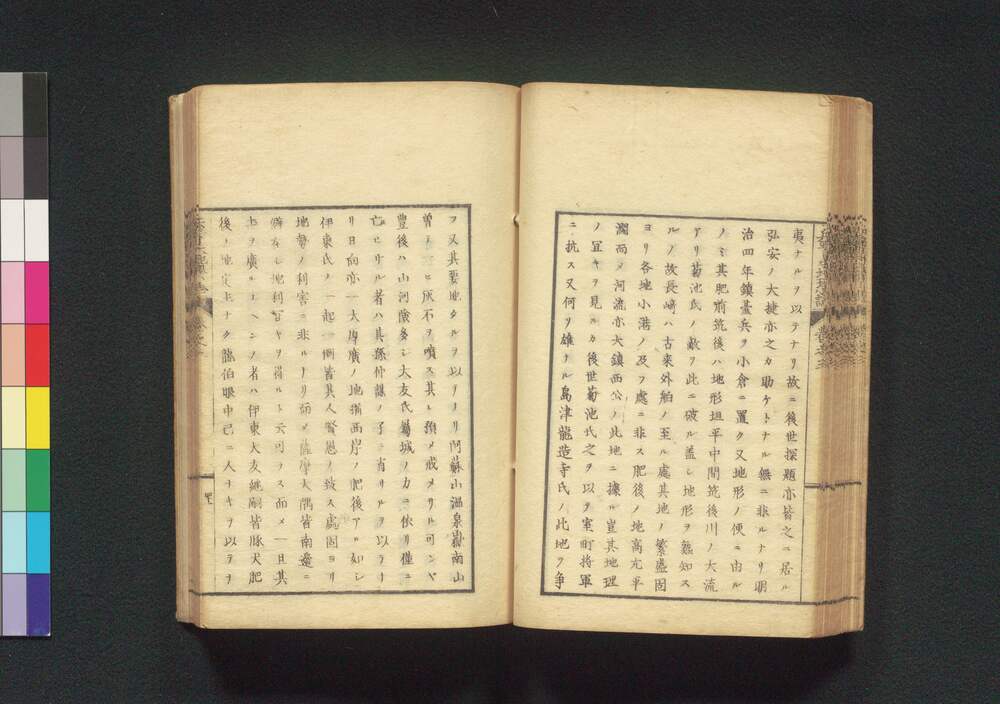 夷ナルヲ以テナリ故ニ後世探題亦皆之ニ居ル
弘安ノ大捷亦之カ助ケトナル無ニ非ルナリ明
治四年鎮臺兵ヲ小倉ニ置ク又地形ノ便ニ由ル
ノミ其肥前筑後ハ地形坦平中間筑後川ノ大流
アリ菊池氏ノ敵ヲ此ニ破ル蓋シ地形ヲ熟知ス
ルノ故長崎ハ古来外舶ノ至ル處其地ノ繁盛固
ヨリ各地小港ノ及フ處ニ非ス肥後ノ地高亢平
濶而又河流亦大鎮西公ノ此地ニ據ル豈其地理
ノ冝キヲ見ルカ後世菊池氏之ヲ以テ室町将軍
ニ抗ス又何リ雄ナル島津龍造寺氏ノ此地ヲ争
フ又其要地タルヲ以ナリ阿蘇山温泉嶽南山
曽テ灰石ヲ噴ス其レ撫メ戒メサル可ンヤ
豊後ハ山河險多シ大友氏舊城ノ力ニ依リ僅ニ
亡ヒサル者ハ其孫仲謀ノ子ニ肖リルヲ以ラナ
リ日向亦一大厚廣ノ地猶西岸ノ肥後アル如シ
伊東氏ノ一起一倒皆其人賢愚ノ致ス處固ヨリ
地勢ノ利害ニ非ルナリ薩摩大隅皆南邊ニ
僻在シ地利冝キヲ得ルト云可ラス而メ一旦其
土ヲ廣ルーヘンノ者ハ伊東大友継嗣皆豚犬肥
後ノ地定主ナク龍伯眼中已ニ人ナキヲ以テヲ